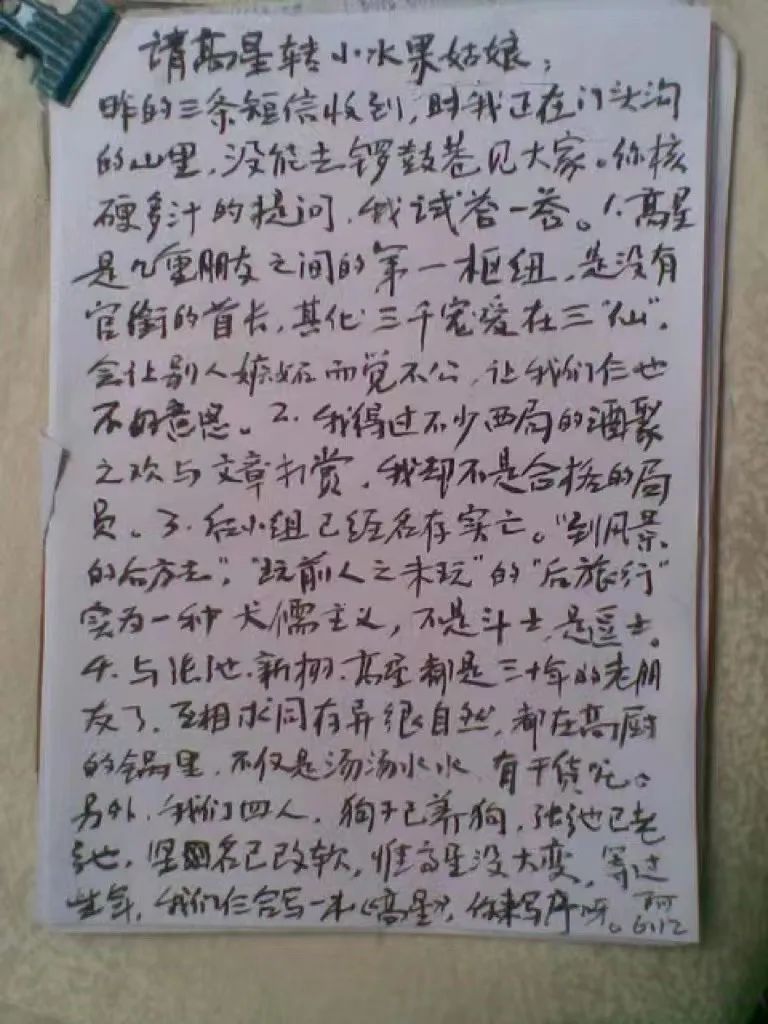 请高星转小水果姑娘：
昨的三条短信收到，时我正在门头沟
的山里，没能去锣鼓巷见大家。你核
硬多汁的提问，我试答一答。1.高星
是九重朋友之间的第一枢纽，是没有
官衔的首长，其化三千宠爱在三“仙”，
会让别人嫉妒而觉不公，让我们仨也
不的意思。2.我得过不少西局的酒聚
之欢与文章打赏，我却不是合格的局
员。3.红小组已经名存实亡。“到风景
的后方去”，“玩前人之未玩”的“后旅行”
实为一种犬儒主义，不是斗士，是逗士。
4.与张弛、新栩、高星都是三十年的老朋
友了，互相求同存异很自然，都在高厨
的锅里，不仅是汤汤水水，有干货呢。
另外，我们四人，狗子已养狗，张弛已老
弛，坚名已改软，惟高星没大变，等过
些年，我们仨合写一本《高星》，你来写序呀。阿
6.12